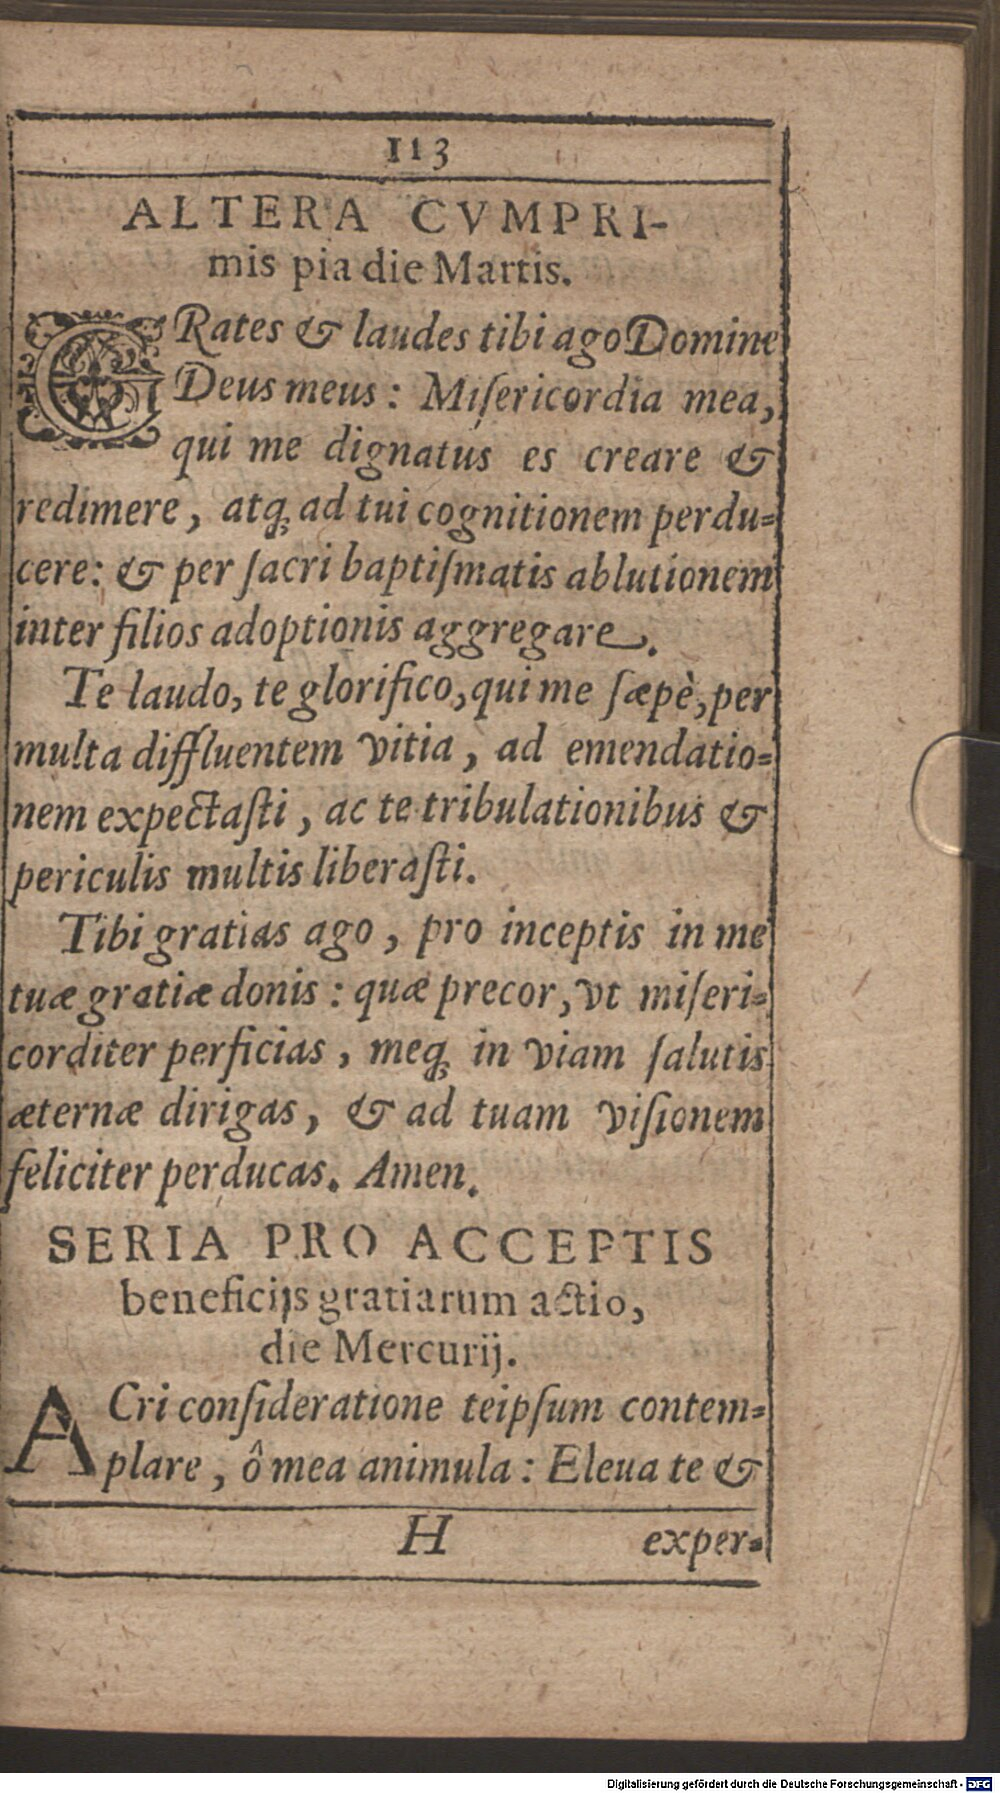 113
ALTERA CVMPRI-
mis pia die Martis.
GRates & laudes tibi ago Domine
Deus meus: Miſericordia mea,
qui me dignatus es creare &
redimere, atq; ad tui cognitionem perdu=
cere: & per ſacri baptiſmatis ablutionem
inter filios adoptionis aggregare.
Te laudo, te glorifico, qui me ſæpè, per
multa diffluentem vitia, ad emendatio=
nem expectaſti, ac te tribulationibus &
periculis multis liberaſti.
Tibi gratias ago, pro inceptis in me
tuæ gratiæ donis: quæ precor, vt miſeri=
corditer perficias, meq; in viam ſalutis
æternæ dirigas, & ad tuam viſionem
feliciter perducas. Amen.
SERIA PRO ACCEPTIS
beneficijs gratiarum actio,
die Mercurij.
ACri conſideratione teipſum contem=
plare, ô mea animula: Eleua te &
H exper=
Digitalisierung gefördert durch die Deutsche Forschungsgemeinschaft - DFG